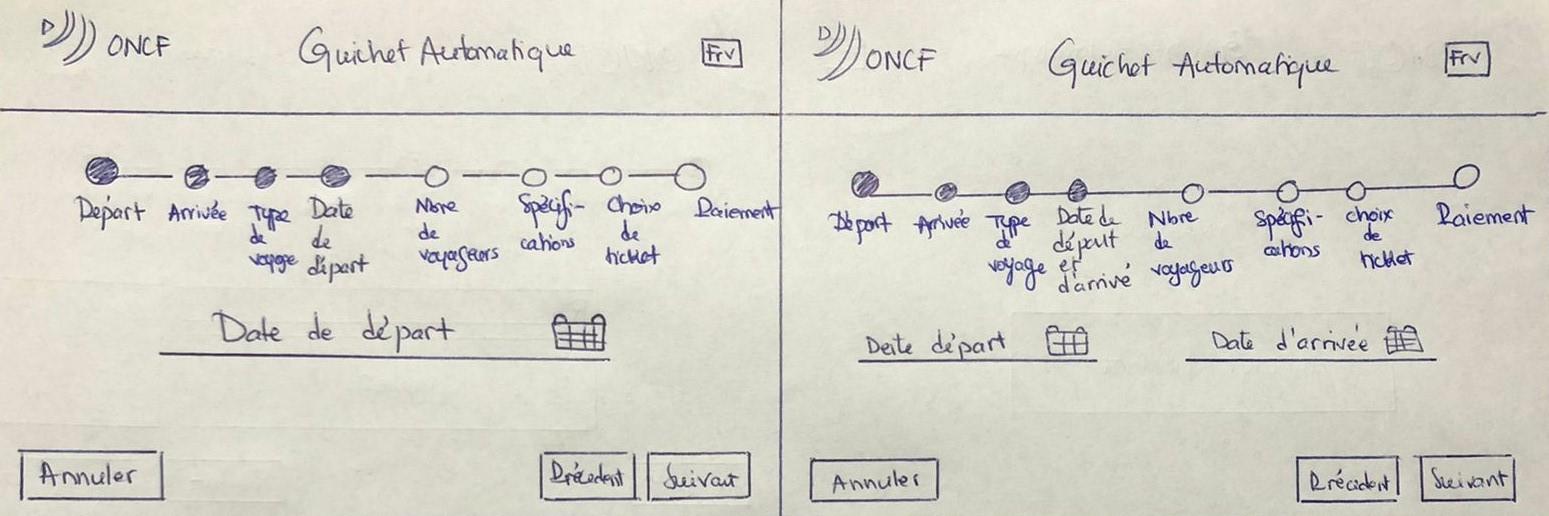 D))) ONCF Guichet Automatique Frv
Départ Arrivée Type de voyage Date de départ Nbre de voyageurs Spécifi-cations Choix de ticket Paiement
Date de départ
Annuler Précédent Suivant
D))) ONCF Guichet Automatique Frv
Départ Arrivée Type de voyage Date de départ et d'arrivé Nbre de voyageurs Spécifi-cations choix de ticket Paiement
Date départ Date d'arrivée
Annuler Précédent Suivant